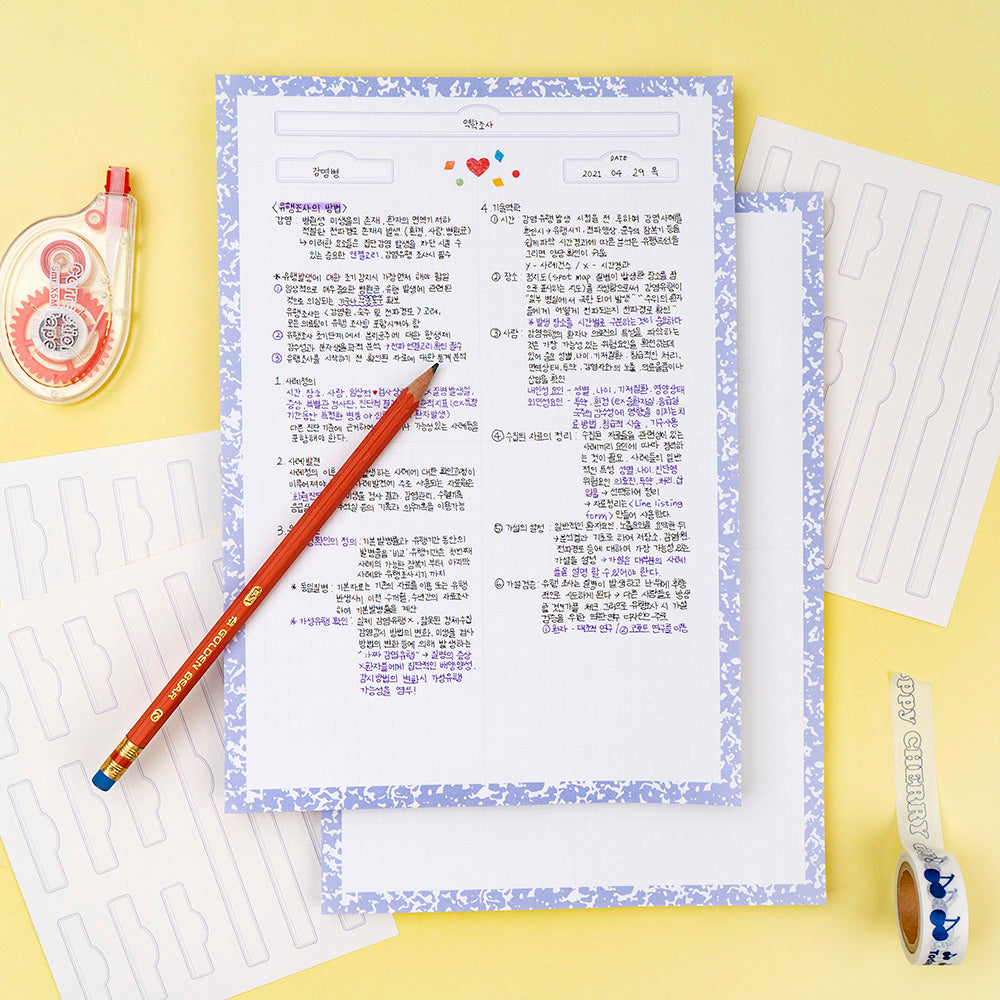 역학조사
감염병
DATE
2021. 04. 29 목
<유행조사의 방법>
감염 : 병원성 미생물의 존재, 환자의 면역기 저하
적절한 전파경로 존재시 발생 (환경, 사람, 병원균)
↳ 이러한 요인들은 집단감염 발생을 차단 시킬 수
있는 중요한 연결고리, 감염유행 조사시 필수
* 유행발생에 대한 조기감지시 가장 먼저 해야 할일
① 임상적으로 매우 중요한 병원균, 유행 발생에 관련된
것으로 의심되는
유행조사는 <감염원, 숙주 및 전파경로> 고려,
모든 의료팀이 유행 조사팀 포함시켜야 함
② 유행조사 초기단계에서 분리균주에 대한 항생제
감수성과 환자 생물학적 분석 → 전파 연결고리 확인 필수
③ 유행조사를 시작하기 전 확인된 자료에 대한 통계 분석
1. 사례정의
시간, 장소, 사람, 임상적 ♥ 검사상 질병발생일,
증상, 특별한 검사단, 진단적 (ex 특정
기간동안 특정한 병동 환자발생)
다른 진단 기준에 근거하여 가능성 있는 사례들을
포함해야 한다.
2. 사례발견
사례정의 이후 발생하는 사례에 대한 확인과정이
이루어져야 사례발견에 주로 사용되는 자료원은
미생물 검사 결과, 감염관리, 수혈기록
응급실 등의 기록과 의무기록을 이용가능
3.
확인의 정의 : 기본발병률과 유행기간 동안의
발병률을 비교 유행기간은 첫번째
사례의 가능한 잠복기 부터 마지막
사례와 유행조사시기 까지
* 동일질병 : 기본자료는 기존의 자료를 이용 또는 유행
발생시 이전 수개월, 수년간의 자료조사
하여 기본발병률을 계산
* 가성유행 확인 : 실제 감염유행 x, 잘못된 검체수집
감염감시 방법의 변화, 미생물 검사
방법의 변화 등에 의해 발생하는
"가짜 감염유행" → 질병의 증상
x 환자들에게 집단적인 배양 양성,
감시방법의 변화시 가성유행
가능성을 염두!
4. 기술역학
① 시간 : 감염유행발생 시점을 전·후하여 감염사례를
확인시 → 유행시기, 전파양상, 균주의 잠복기 등을
쉽게 파악, 시간경과에 따른 분석은 유행곡선을
그리면 양상 확인이 쉬움
y - 사례건수 / x - 시간경과
② 장소 : 점지도 (spot Map 질병이 발생한 장소를 점
으로 표시하는 지도)를 작성함으로써 감염유행이
"일부 병실에서 국한 되어 발생" 주위의 환자
들에게 어떻게 전파되는지 전파 경로 확인
* 발생 장소를 시간별로 구분하는 것이 중요하다
③ 사람 : 감염유행의 환자나 의료진의 특성을 파악하는
것은 가장 가능성 있는 위험요인을 확인하는데
있어 중요 성별, 나이, 기저질환, 침습적인 처치,
면역상태, 투약, 감염자와의 노출, 의료물품이나
삽입물 확인
내인성 요인 - 성별, 나이, 기저질환, 영양상태
외인성요인 - 투약, 환경 (ex 중환자실, 응급실
균주의 감수성에 영향을 미치는 치
료 방법, 침습적 시술, 기구사용
④ 수집된 자료의 정리 : 수집된 자료들을 관련성이 있는
사례끼리 요인에 따라 정리하
는 것이 필요. 사례들의 일반
적인 특성 성별, 나이, 진단명
위험요인 의료진, 투약, 처치, 삽
입물 → 선택하여 정리
→ 자료정리는 <Line listing
form> 만들어 사용한다.
⑤ 가설의 설정 : 일반적인 환자요인, 노출요인을 요약한 뒤
→ 분석결과 기초로 하여 저장소, 감염원,
전파경로 등에 대하여 가장 가능성 있는
가설을 설정 → 가설은 대부분의 사례
들을 설명 할 수 있어야 한다.
⑥ 가설검증 : 유행 조사는 질병이 발생하고 난 후에 후향
적으로
할 것인가를 제시 그러므로 유행조사 시 가설
검증을 위한 역학연구 디자인은 주로
① 환자-대조적 연구 / ② 코호트 연구를 이용
GOLDEN BEAR
2
correction
tape
5mmX5M
PPY CHERRY